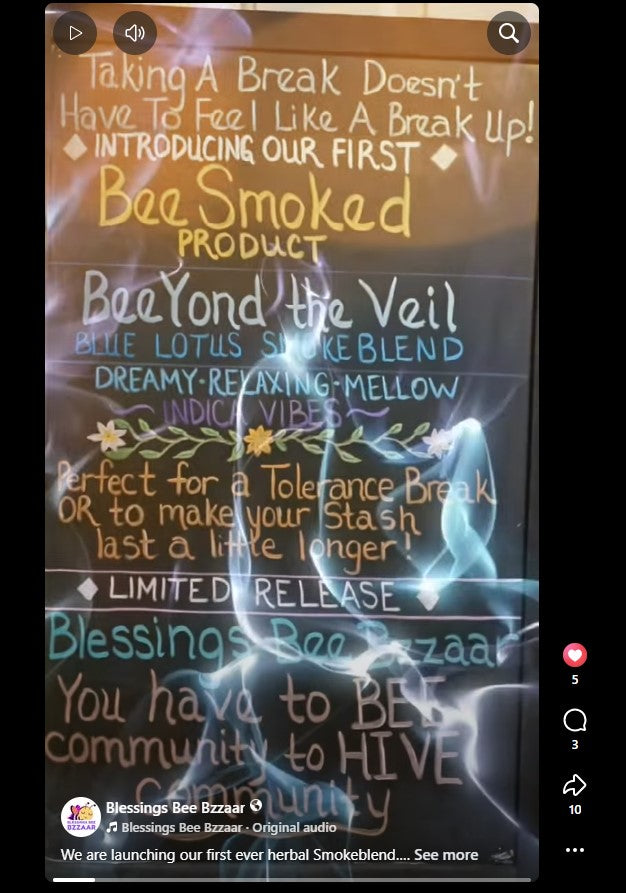 Taking A Break Doesn't
Have To Feel Like A Break Up!
INTRODUCING OUR FIRST
Bee Smoked
PRODUCT
BeeYond the Veil
BLUE LOTUS SMOKEBLEND
DREAMY-RELAXING-MELLOW
~INDICA VIBES~
Perfect for a Tolerance Break
OR to make your Stash
last a little longer!
LIMITED RELEASE
Blessings Bee Bzzaar
You have to BEE
community to HIVE
Community
BLESSINGS BEE
BZZAAR
Blessings Bee Bzzaar
Blessings Bee Bzzaar · Original audio
We are launching our first ever herbal Smokeblend.... See more
5
3
10